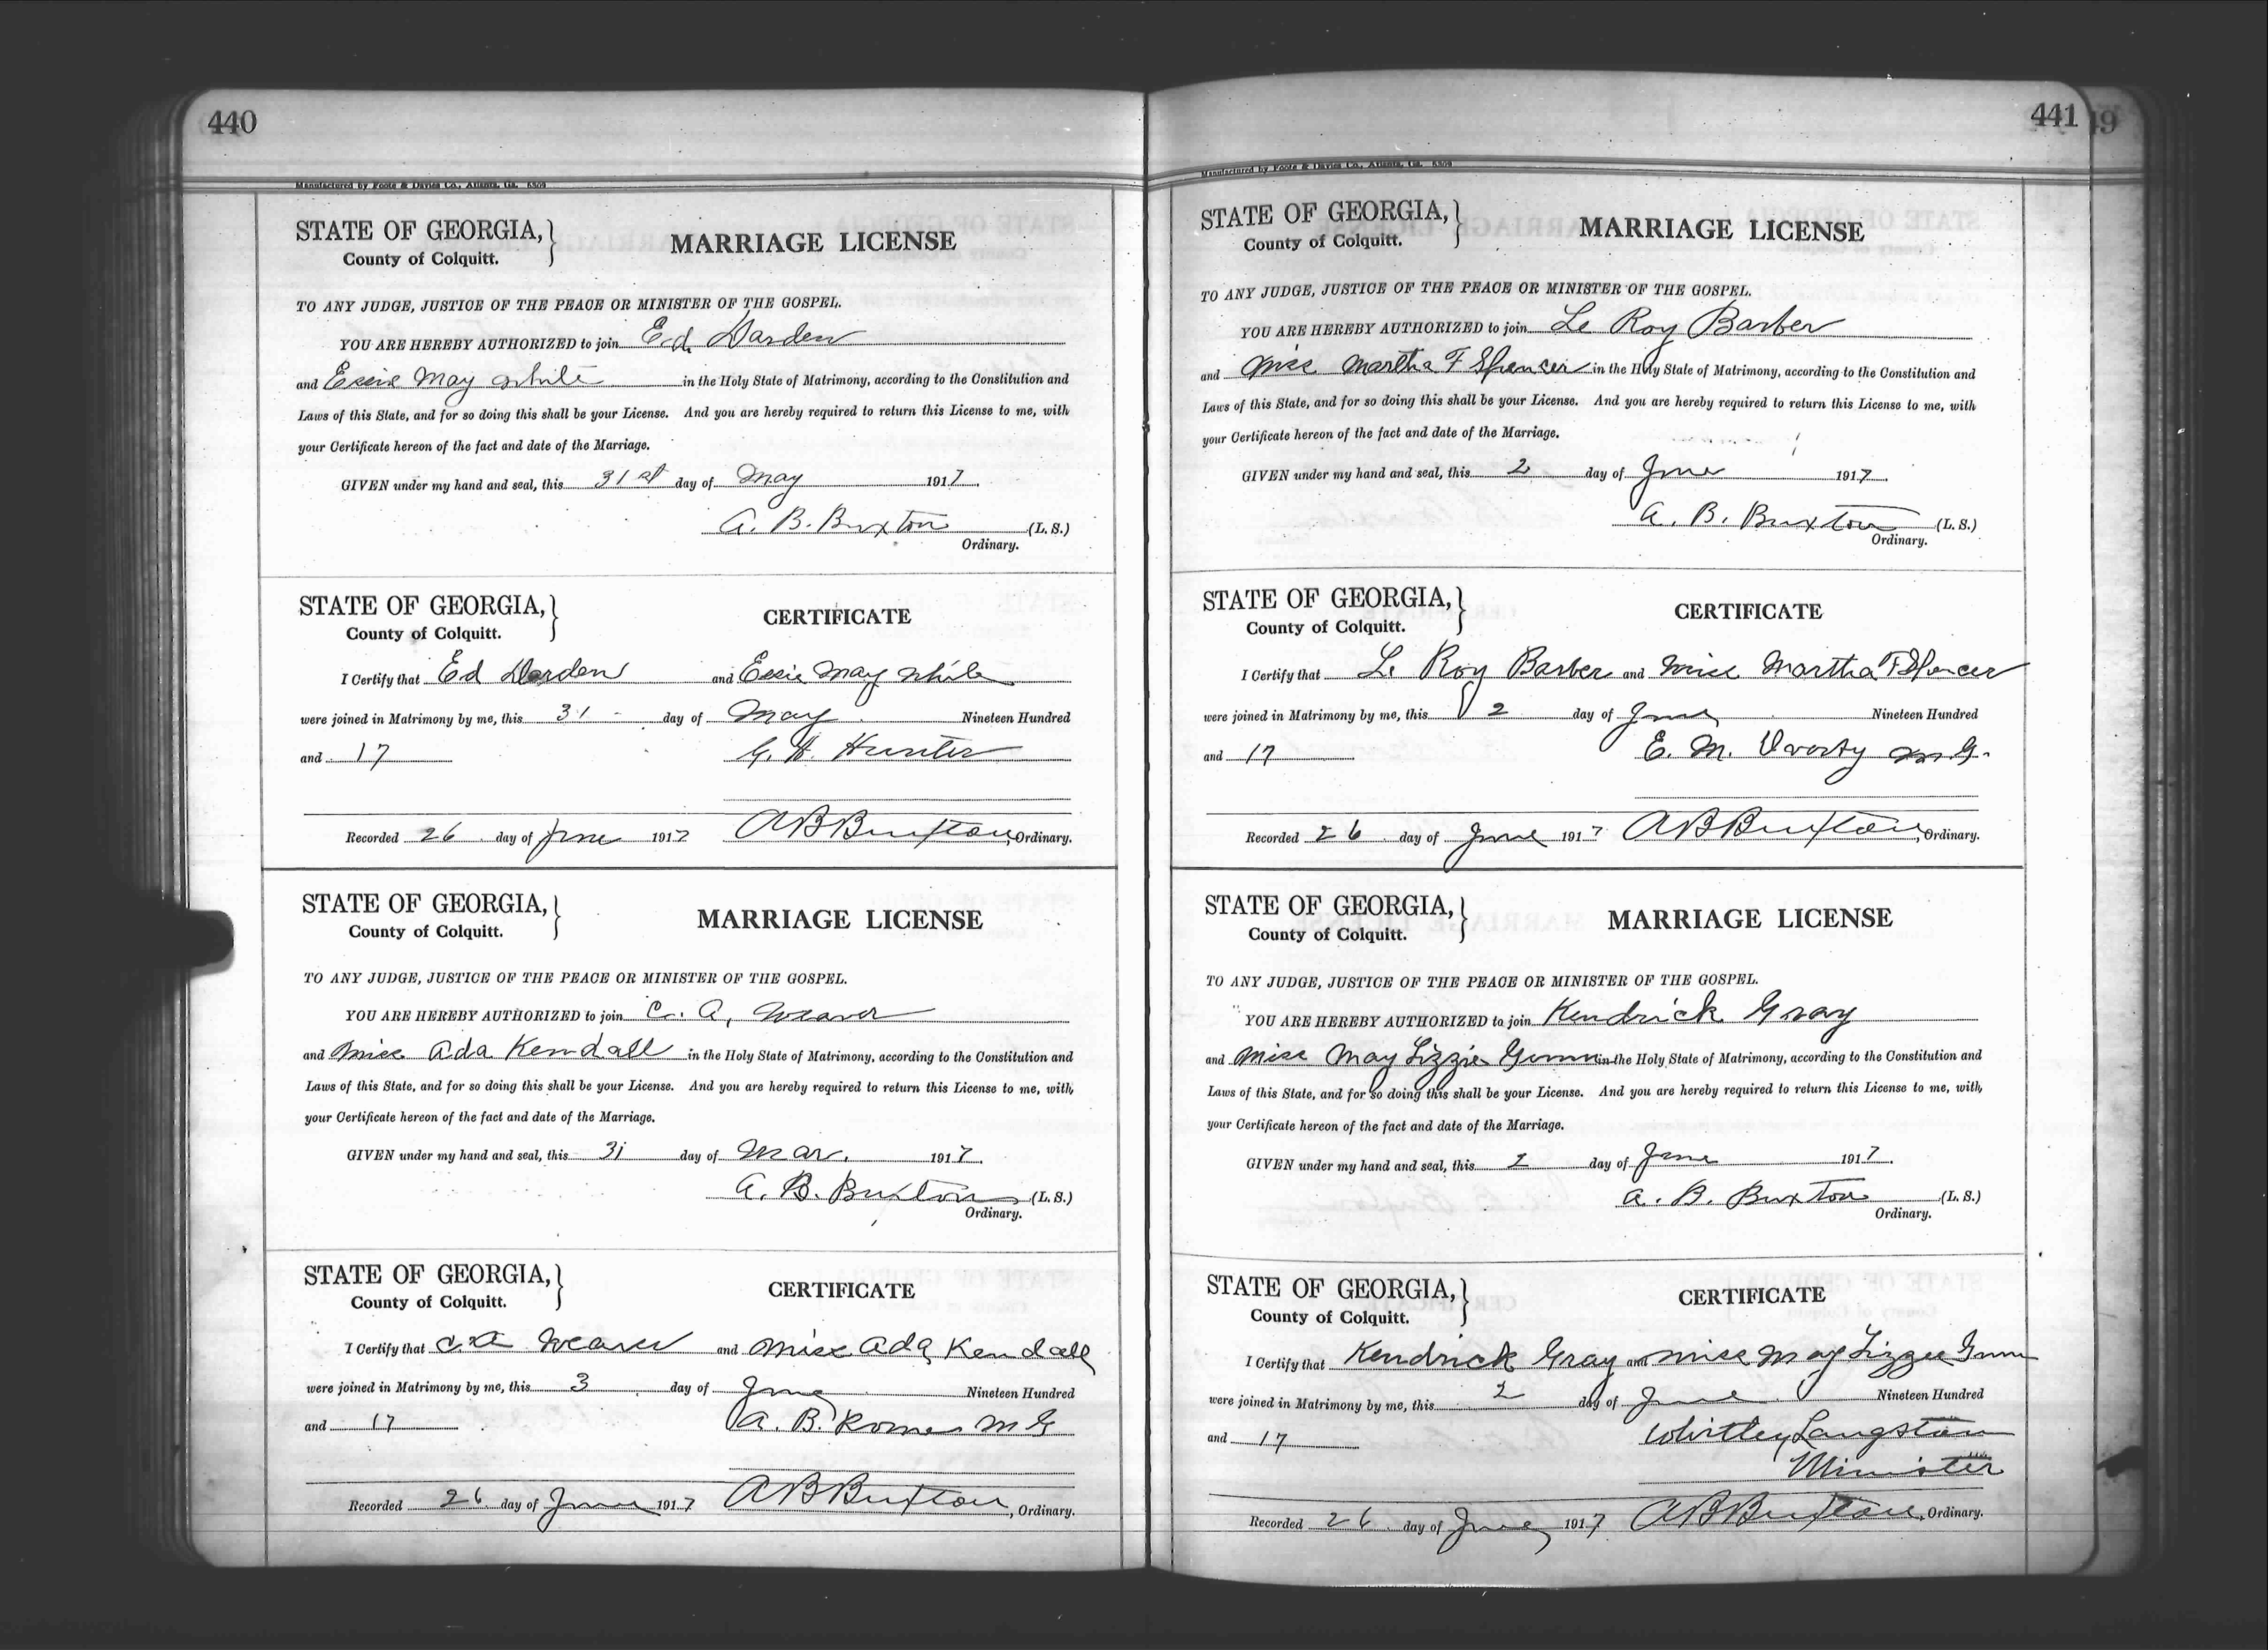 440
Manufactured by Foote & Davies Co., Atlanta, Ga.
STATE OF GEORGIA,
County of Colquitt.
MARRIAGE LICENSE
TO ANY JUDGE, JUSTICE OF THE PEACE OR MINISTER OF THE GOSPEL.
YOU ARE HEREBY AUTHORIZED to join Ed Darden
and Essie May White in the Holy State of Matrimony, according to the Constitution and
Laws of this State, and for so doing this shall be your License. And you are hereby required to return this License to me, with
your Certificate hereon of the fact and date of the Marriage.
GIVEN under my hand and seal, this 31st day of May 1917.
A. B. Buxton (L. S.)
Ordinary.
STATE OF GEORGIA,
County of Colquitt.
CERTIFICATE
I Certify that Ed Darden and Essie May White
were joined in Matrimony by me, this 31 day of May Nineteen Hundred
and 17 G. H. Hunter
Recorded 26 day of June 1917 A B Buxton, Ordinary.
STATE OF GEORGIA,
County of Colquitt.
MARRIAGE LICENSE
TO ANY JUDGE, JUSTICE OF THE PEACE OR MINISTER OF THE GOSPEL.
YOU ARE HEREBY AUTHORIZED to join C. A. Weaver
and Miss Ada Kendall in the Holy State of Matrimony, according to the Constitution and
Laws of this State, and for so doing this shall be your License. And you are hereby required to return this License to me, with
your Certificate hereon of the fact and date of the Marriage.
GIVEN under my hand and seal, this 31 day of Mar. 1917.
A. B. Buxton (L. S.)
Ordinary.
STATE OF GEORGIA,
County of Colquitt.
CERTIFICATE
I Certify that C. A Weaver and Miss Ada Kendall
were joined in Matrimony by me, this 3 day of June Nineteen Hundred
and 17 A. B. M G
Recorded 26 day of June 1917 A B Buxton, Ordinary.
441
Manufactured by Foote & Davies Co., Atlanta, Ga.
STATE OF GEORGIA,
County of Colquitt.
MARRIAGE LICENSE
TO ANY JUDGE, JUSTICE OF THE PEACE OR MINISTER OF THE GOSPEL.
YOU ARE HEREBY AUTHORIZED to join Le Roy Barber
and Miss Martha F Spencer in the Holy State of Matrimony, according to the Constitution and
Laws of this State, and for so doing this shall be your License. And you are hereby required to return this License to me, with
your Certificate hereon of the fact and date of the Marriage.
GIVEN under my hand and seal, this 2 day of June 1917.
A. B. Buxton (L. S.)
Ordinary.
STATE OF GEORGIA,
County of Colquitt.
CERTIFICATE
I Certify that Le Roy Barber and Miss Martha F Spencer
were joined in Matrimony by me, this 2 day of June Nineteen Hundred
and 17 E. M. M. G.
Recorded 26 day of June 1917 A B Buxton, Ordinary.
STATE OF GEORGIA,
County of Colquitt.
MARRIAGE LICENSE
TO ANY JUDGE, JUSTICE OF THE PEACE OR MINISTER OF THE GOSPEL.
YOU ARE HEREBY AUTHORIZED to join Kendrick Gray
and Miss May Lizzie Gunn in the Holy State of Matrimony, according to the Constitution and
Laws of this State, and for so doing this shall be your License. And you are hereby required to return this License to me, with
your Certificate hereon of the fact and date of the Marriage.
GIVEN under my hand and seal, this 2 day of June 1917.
A. B. Buxton (L. S.)
Ordinary.
STATE OF GEORGIA,
County of Colquitt.
CERTIFICATE
I Certify that Kendrick Gray and Miss May Lizzie Gunn
were joined in Matrimony by me, this 2 day of June Nineteen Hundred
and 17 Whitley Langston
Minister
Recorded 26 day of June 1917 A B Buxton, Ordinary.